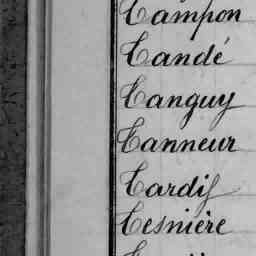 Tampon
Candé
Tanguy
Tanneur
Tardif
Tesnière